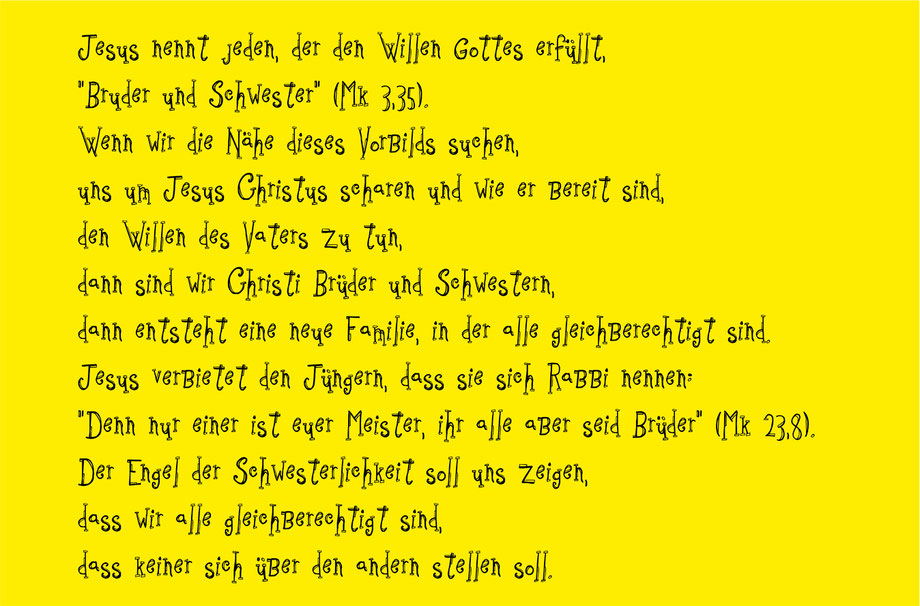 Jesus nennt jeden, der den Willen Gottes erfüllt,
"Bruder und Schwester" (Mk 3,35).
Wenn wir die Nähe dieses Vorbilds suchen,
uns um Jesus Christus scharen und wie er bereit sind,
den Willen des Vaters zu tun,
dann sind wir Christi Brüder und Schwestern,
dann entsteht eine neue Familie, in der alle gleichberechtigt sind.
Jesus verbietet den Jüngern, dass sie sich Rabbi nennen:
"Denn nur einer ist euer Meister, ihr alle aber seid Brüder" (Mk 23,8).
Der Engel der Schwesterlichkeit soll uns zeigen,
dass wir alle gleichberechtigt sind,
dass keiner sich über den andern stellen soll.